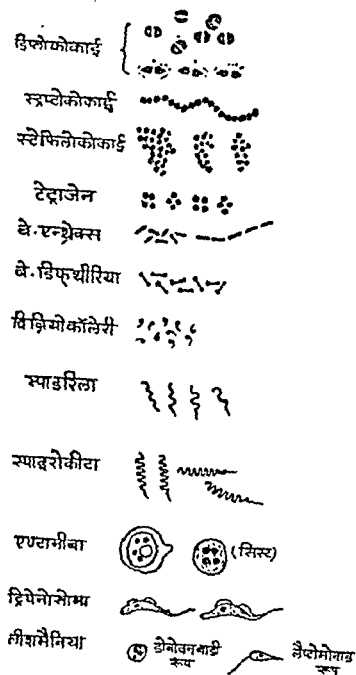 डिप्लोकोकाई
स्ट्रप्टोकोकाई
स्टेफिलोकोकाई
टेट्राजेन
बे. एन्थ्रेक्स
बे. डिफ्थीरिया
विब्रियोकॉलेरी
स्पाइरिला
स्पाइरोकीटा
एण्टामीबा
(सिस्ट)
ट्रिपेनोसोमा
लीशमैनिया
डोनोवन बाडी
रूप
लैप्टोमोनाड
रूप